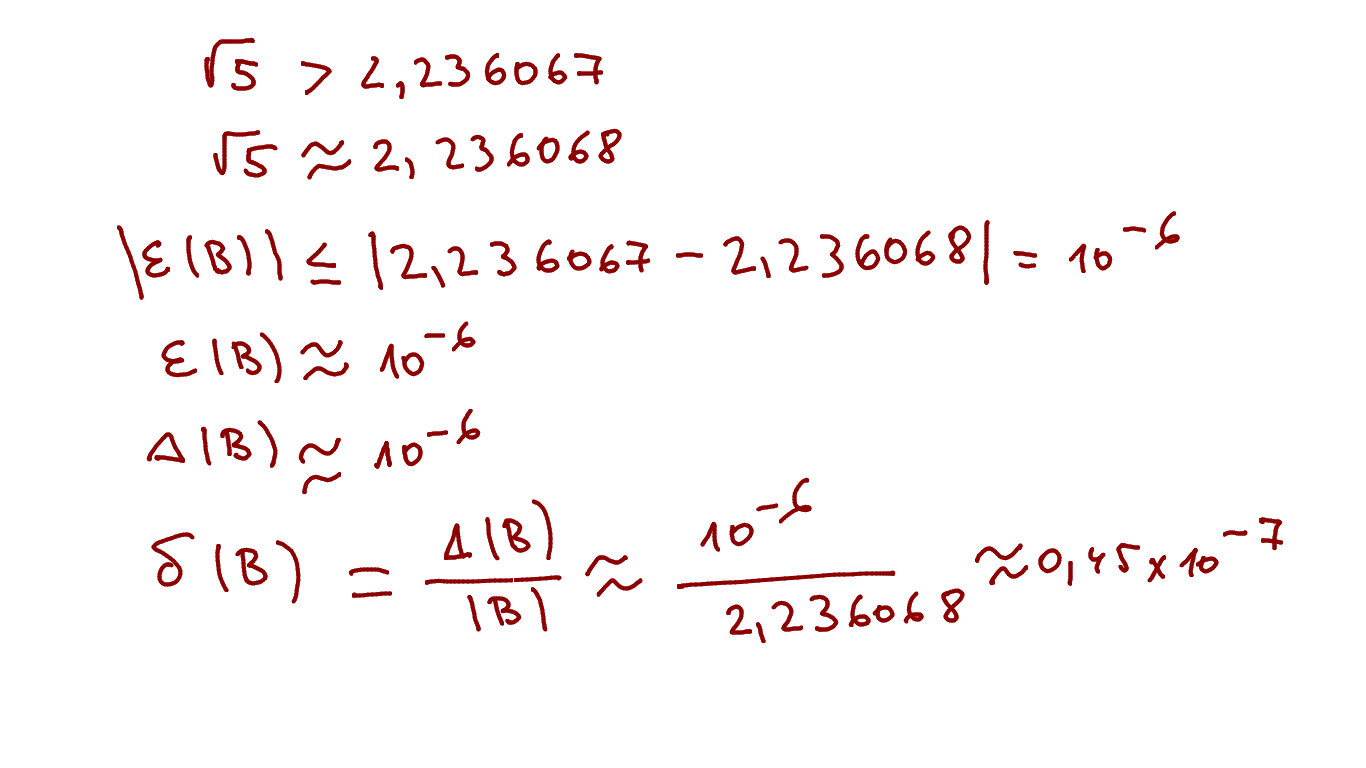 √5 > 2,236067
√5 ≈ 2,236068
|ε(B)| ≤ |2,236067 - 2,236068| = 10^-6
ε(B) ≈ 10^-6
Δ(B) ≈ 10^-6
δ(B) = Δ(B)/|B| ≈ 10^-6/2,236068 ≈ 0,45 x 10^-7